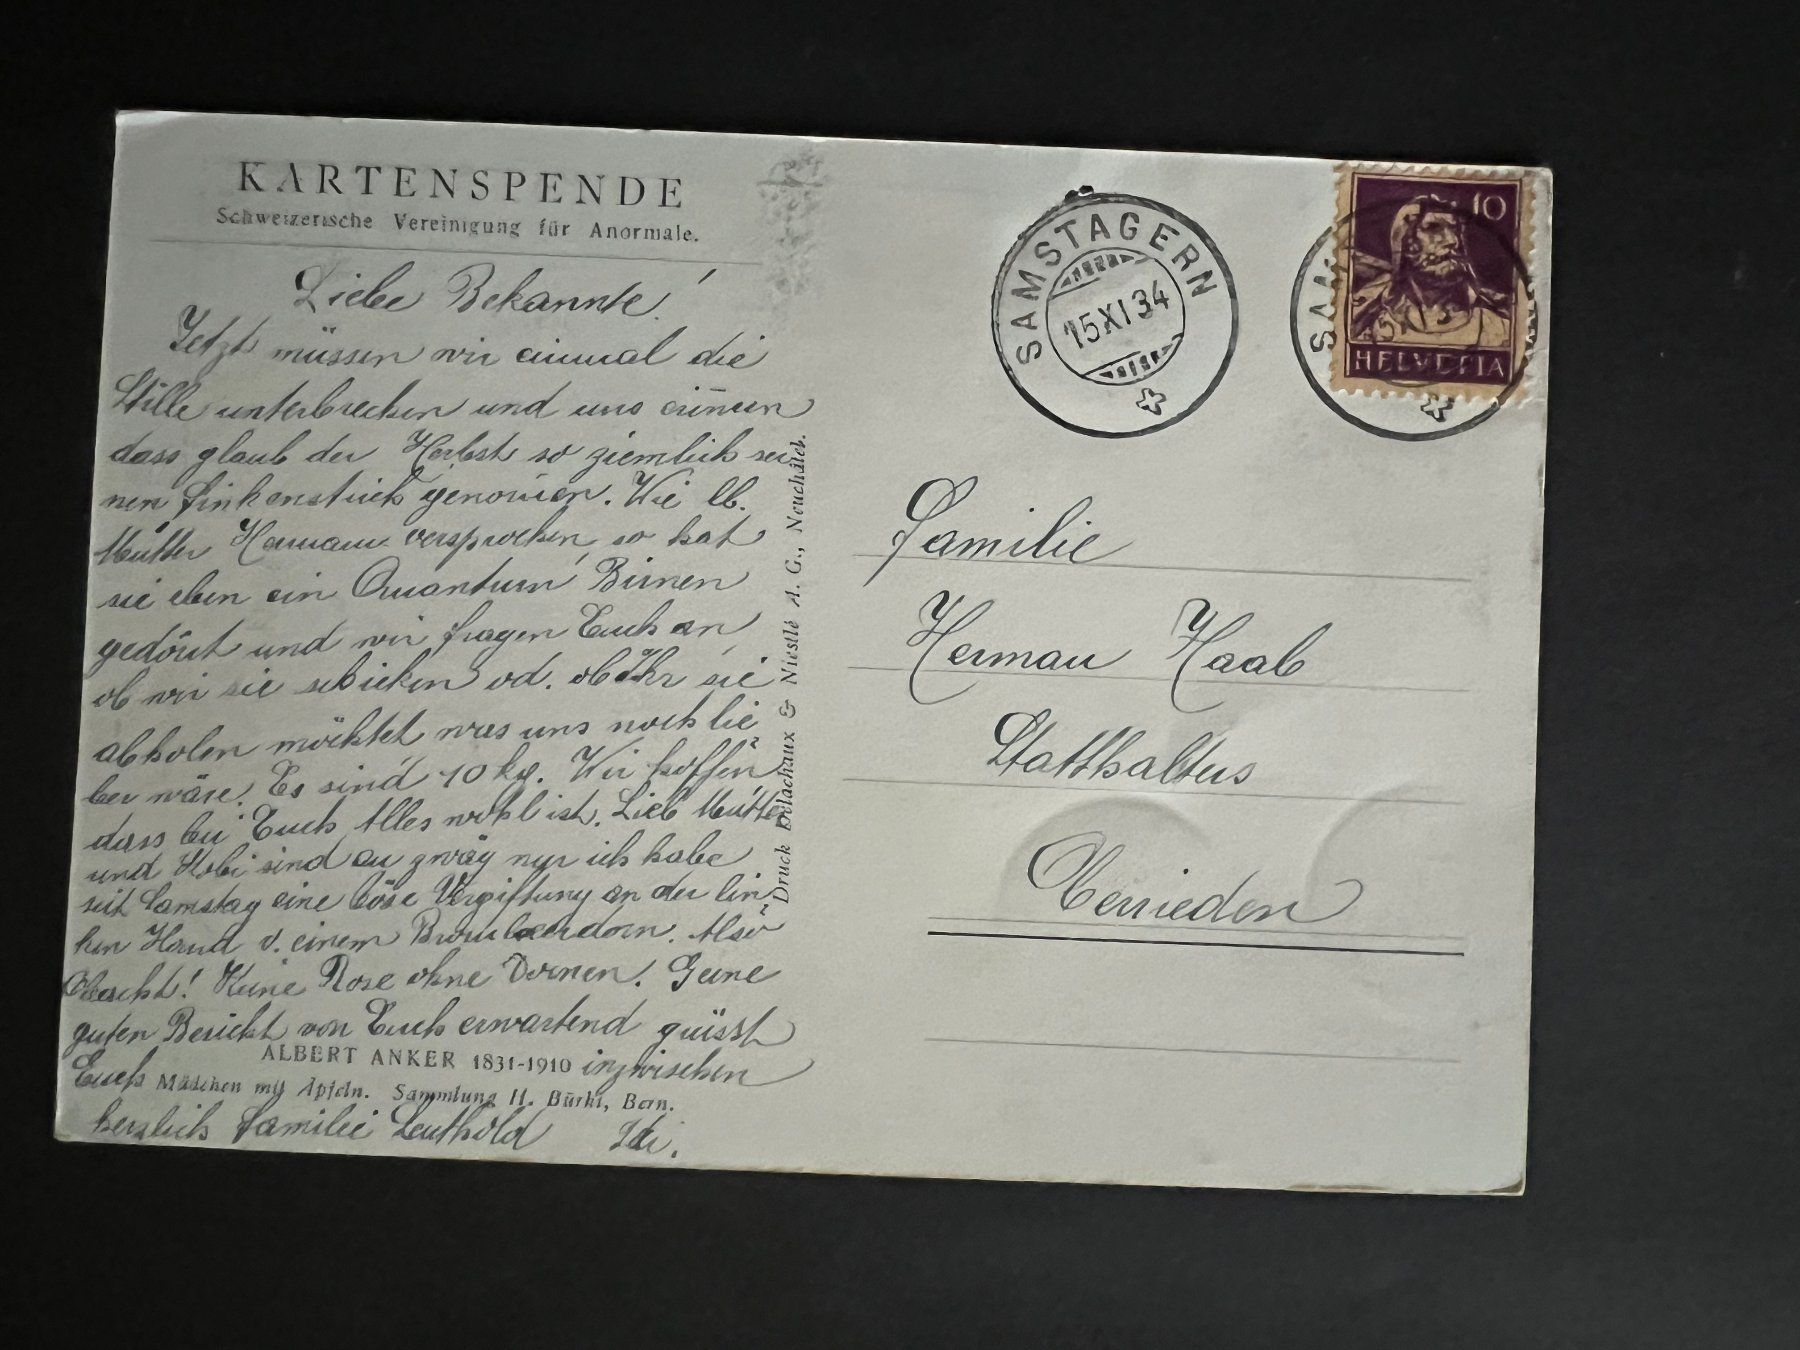 KARTENSPENDE
Schweizerische Vereinigung für Anormale.
Liebe Bekannte!
Jetzt müssen wir einmal die
Stille unterbrechen und uns erin̄ern
dass glaub der Herbst so ziemlich sei
nen genom̄en. Wie lb.
Mutter Hermann versprochen, so hat
sie eben ein Quantum Birnen
gedörrt und wir fragen Euch an,
ob wir sie schicken od. ob Ihr sie
abholen möchtet was uns noch lie
ber wäre. Es sind 10 kg. Wir hoffen
dass bei Euch Alles wohl ist. Lieb Mutter
und sind au zwäg nur ich habe
seit Samstag eine böse Vergiftung an der lin
ken Hand v. einem Brombeerdorn. Also
Obacht! Keine Rose ohne Dornen. Gerne
guten Bericht von Euch erwartend grüsst
ALBERT ANKER 1831-1910 inzwischen
Euch Mädchen mit Äpfeln. Sammlung H. Bürki, Bern.
herzlich Familie Leuthold
Druck Delachaux & Niestlé A. G., Neuchâtel.
SAMSTAGERN
15 XI 34
10
HELVETIA
Familie
Herman Haab
Statthalters
Oberrieden